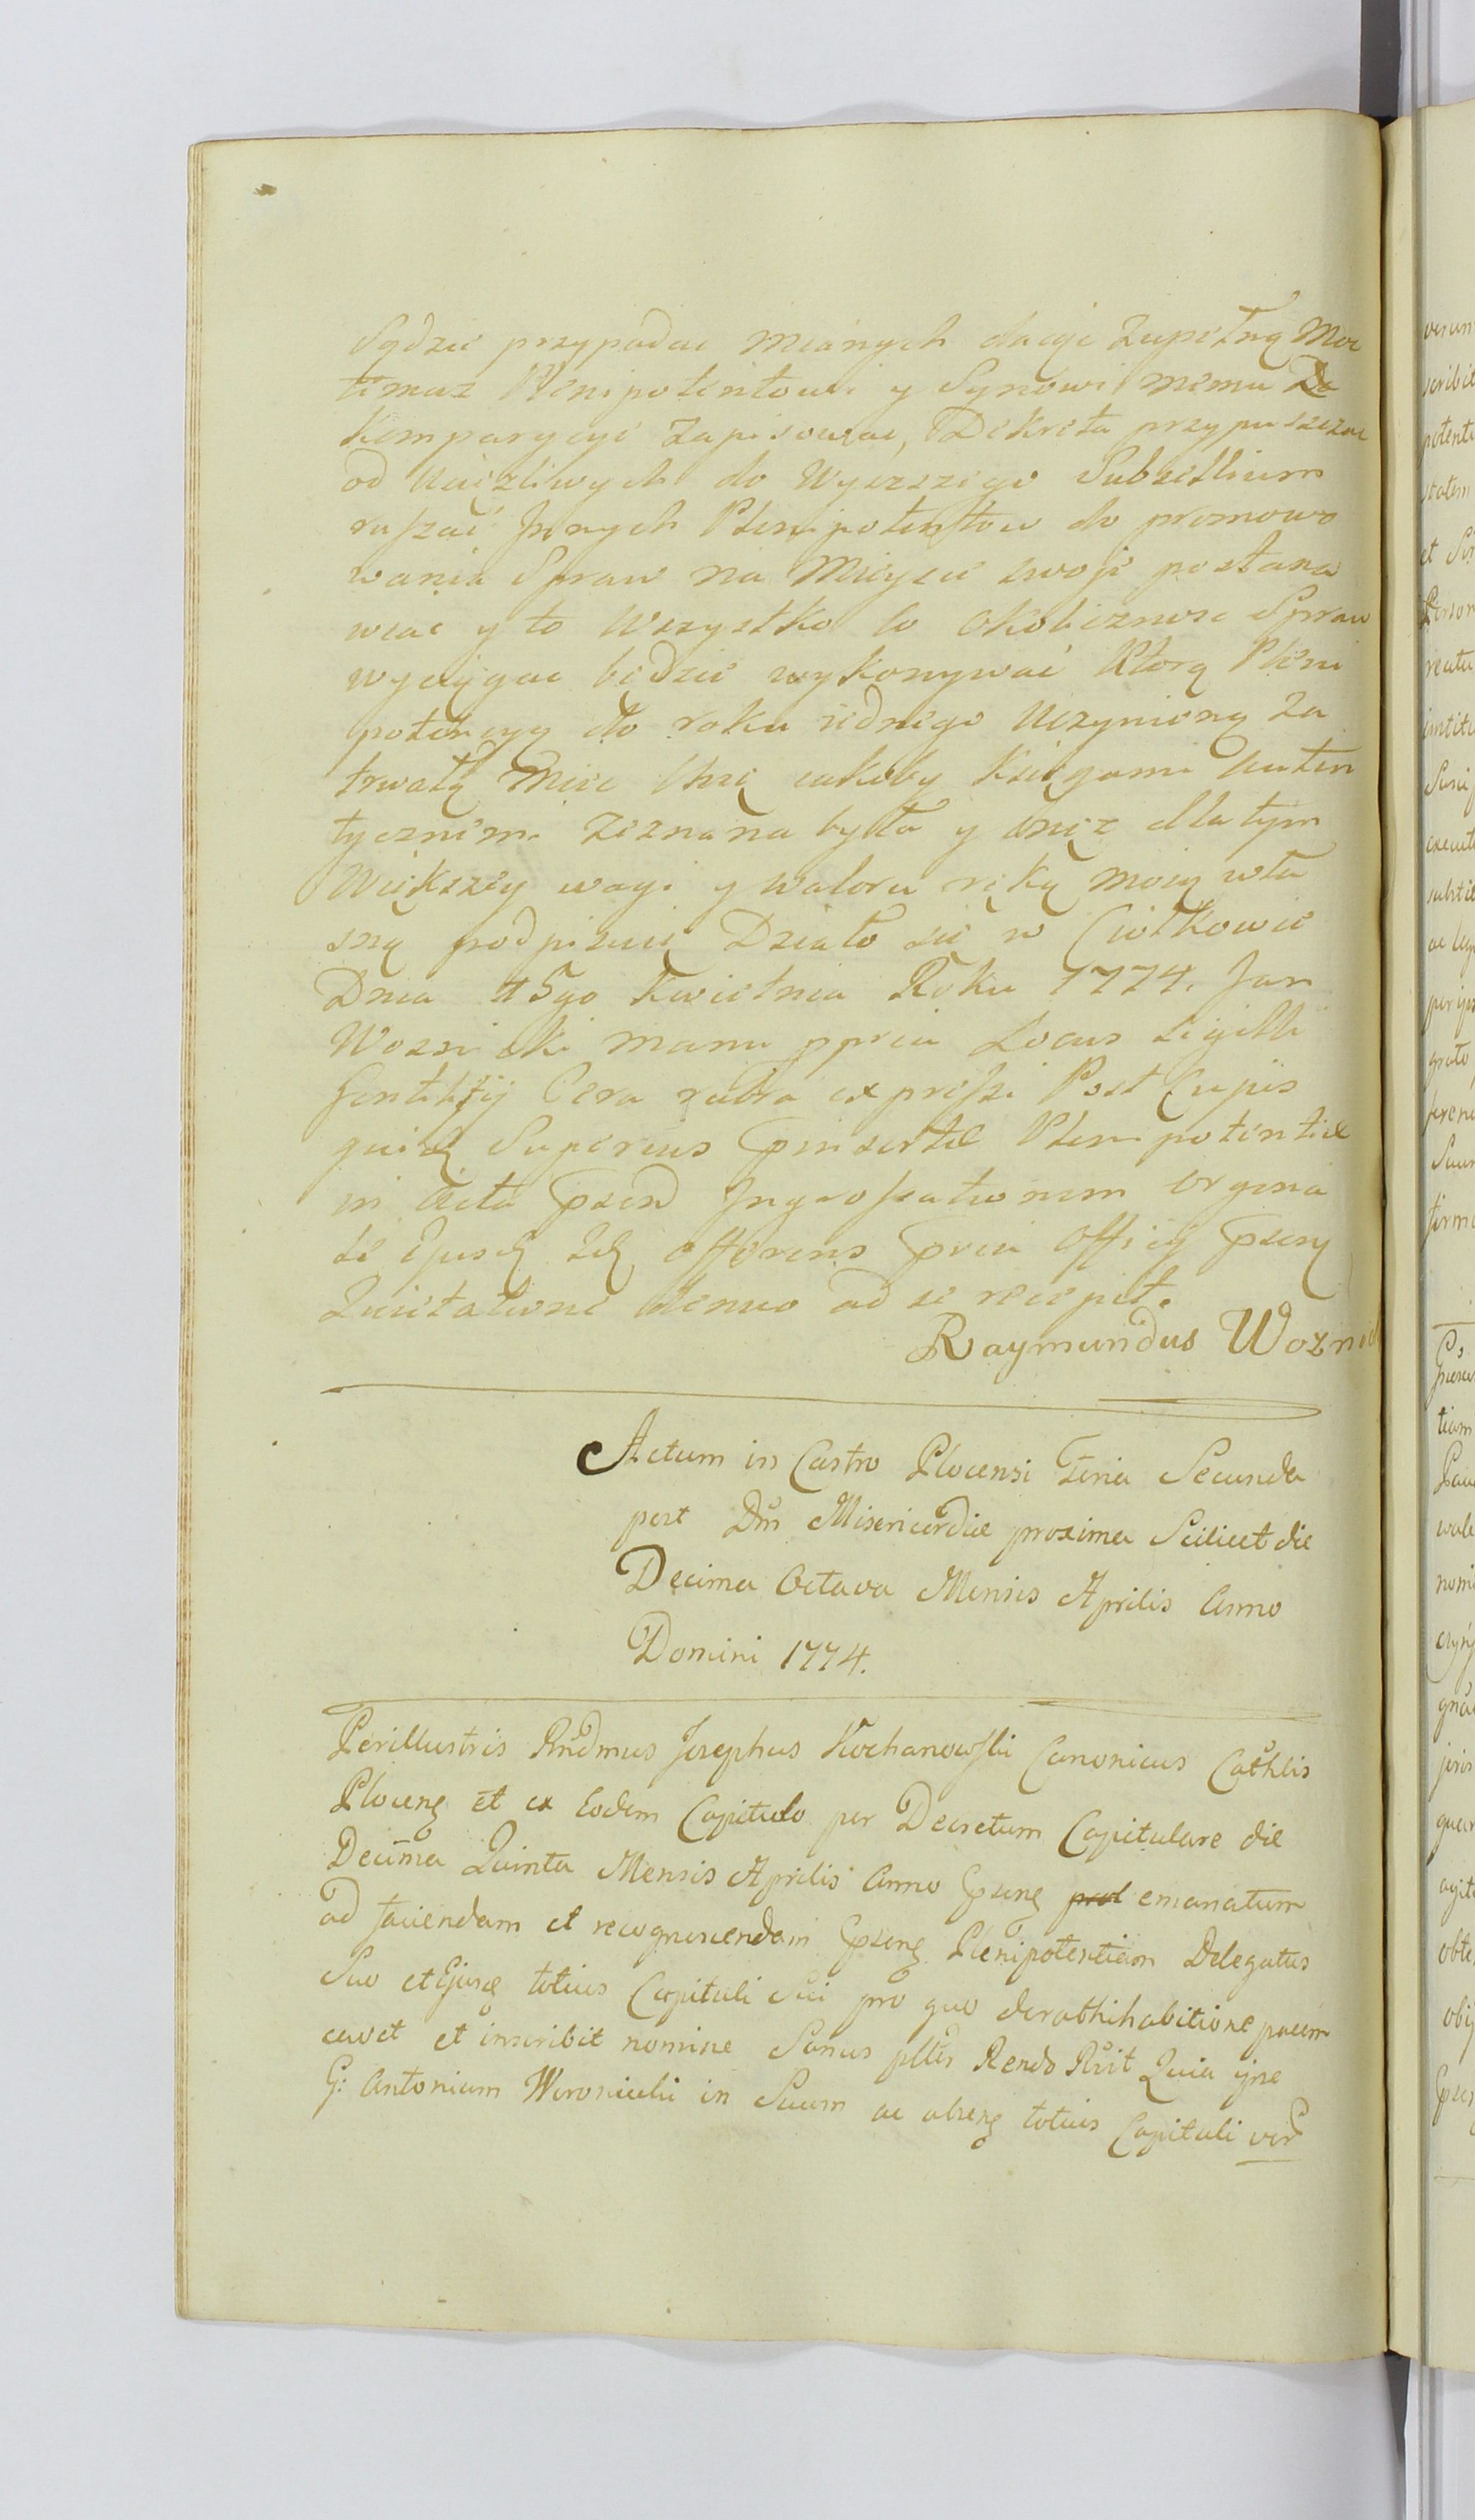 będzie przypadac mianych daię zupełną Moc
temuz Plenipotentowi y Synowi memu Do
Komparycyi zapisowac, Dekreta przypuszczac
od uciązliwych do wyzszego Subsellium
ruszac Jnnych Plenipotentow do promowo
wania Spraw na Mieysce swoje postana
wiac y to wszystko co okolicznosc Spraw
wyciągac będzie wykonywać Ktorą Pleni
potencyą do roku iednego uczynioną za
trwałą Miec chcę iakoby Xięgami auten
tycznemi zeznana była y onęz dla tym
Większey wagi y waloru ręką moią wła
sną podpisuię Działo się w Ciołkowie
Dnia 15go Kwietnia Roku 1774. Jan
Woznicki manu ppria Locus sigilli
Gentilitij Cera rubra expressi Post Cujus
quidẽ Superius pinsertæ Plenipotentiæ
in Acta psend Jngrossationem origina
le Ejusd Id offerens pria Officij psenɋ
Quietatione denuo ad se recepit.
Raymundus Wozni
Actum in Castro Plocensi Feria Secunda
post Dm̃ Misericordiæ proxima Scilicet die
Decima Octava Mensis Aprilis Anno
Domini 1774.
Perillustris Rndmus Josephus Kochanowski Canonicus Cathlis
Plocenɋ et ex Eodem Capitulo per Decretum Capitulare die
Decima Quinta Mensis Aprilis Anno psenɋ emanatum
ad faciendam et recognoscendam psenɋ Plenipotentiam Delegatus
Suo et Ejusɋ totius Capituli Sui pro quo de rathihabitione pacem
cavet et inscribit nomine Sanus Rendo Quia ipse
G: Antonium Woronicki in Suum ac absenɋ totius Capituli ver